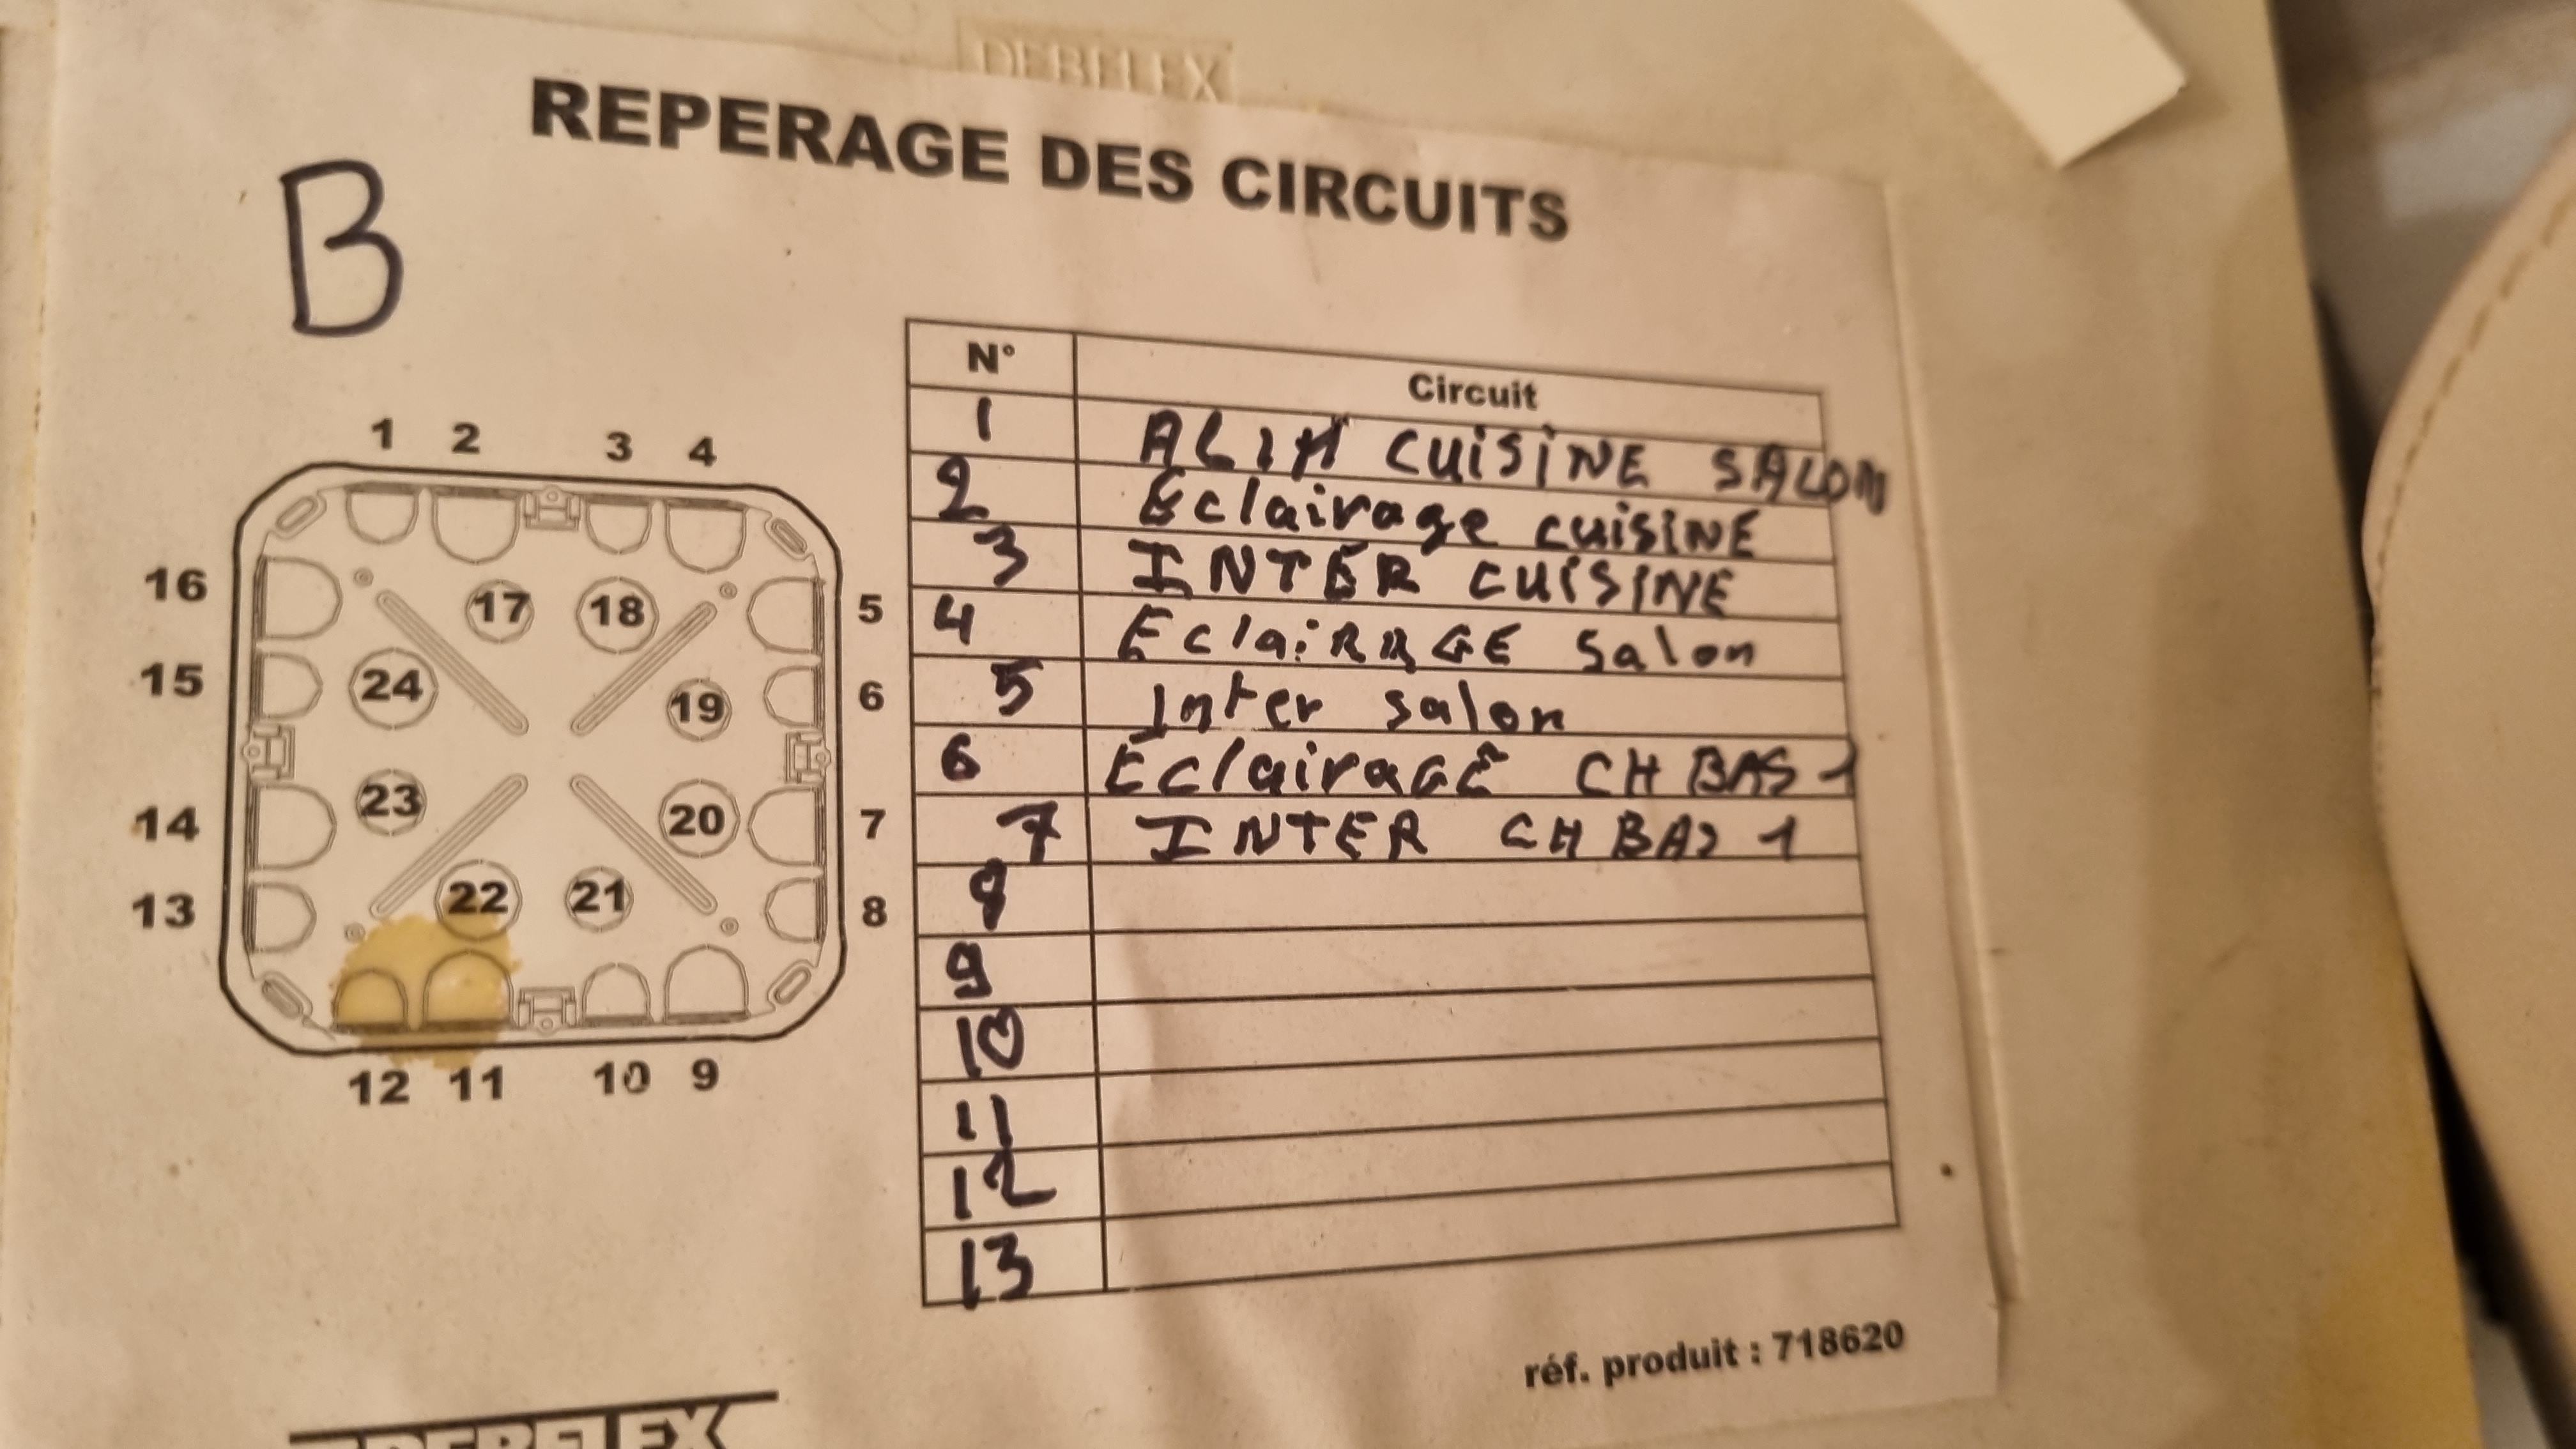 DEBFLEX
B
REPERAGE DES CIRCUITS
1 2 3 4
16 5
15 6
14 7
13 8
12 11 10 9
24 17 18 19
23 22 21 20
N° Circuit
1 ALIM CUISINE SALON
2 Eclairage CUISINE
3 INTER CUISINE
4 EclaiRAGE Salon
5 Inter salon
6 EclairaGE CH BAS 1
7 INTER CH BAS 1
9
10
11
12
13
réf. produit : 718620